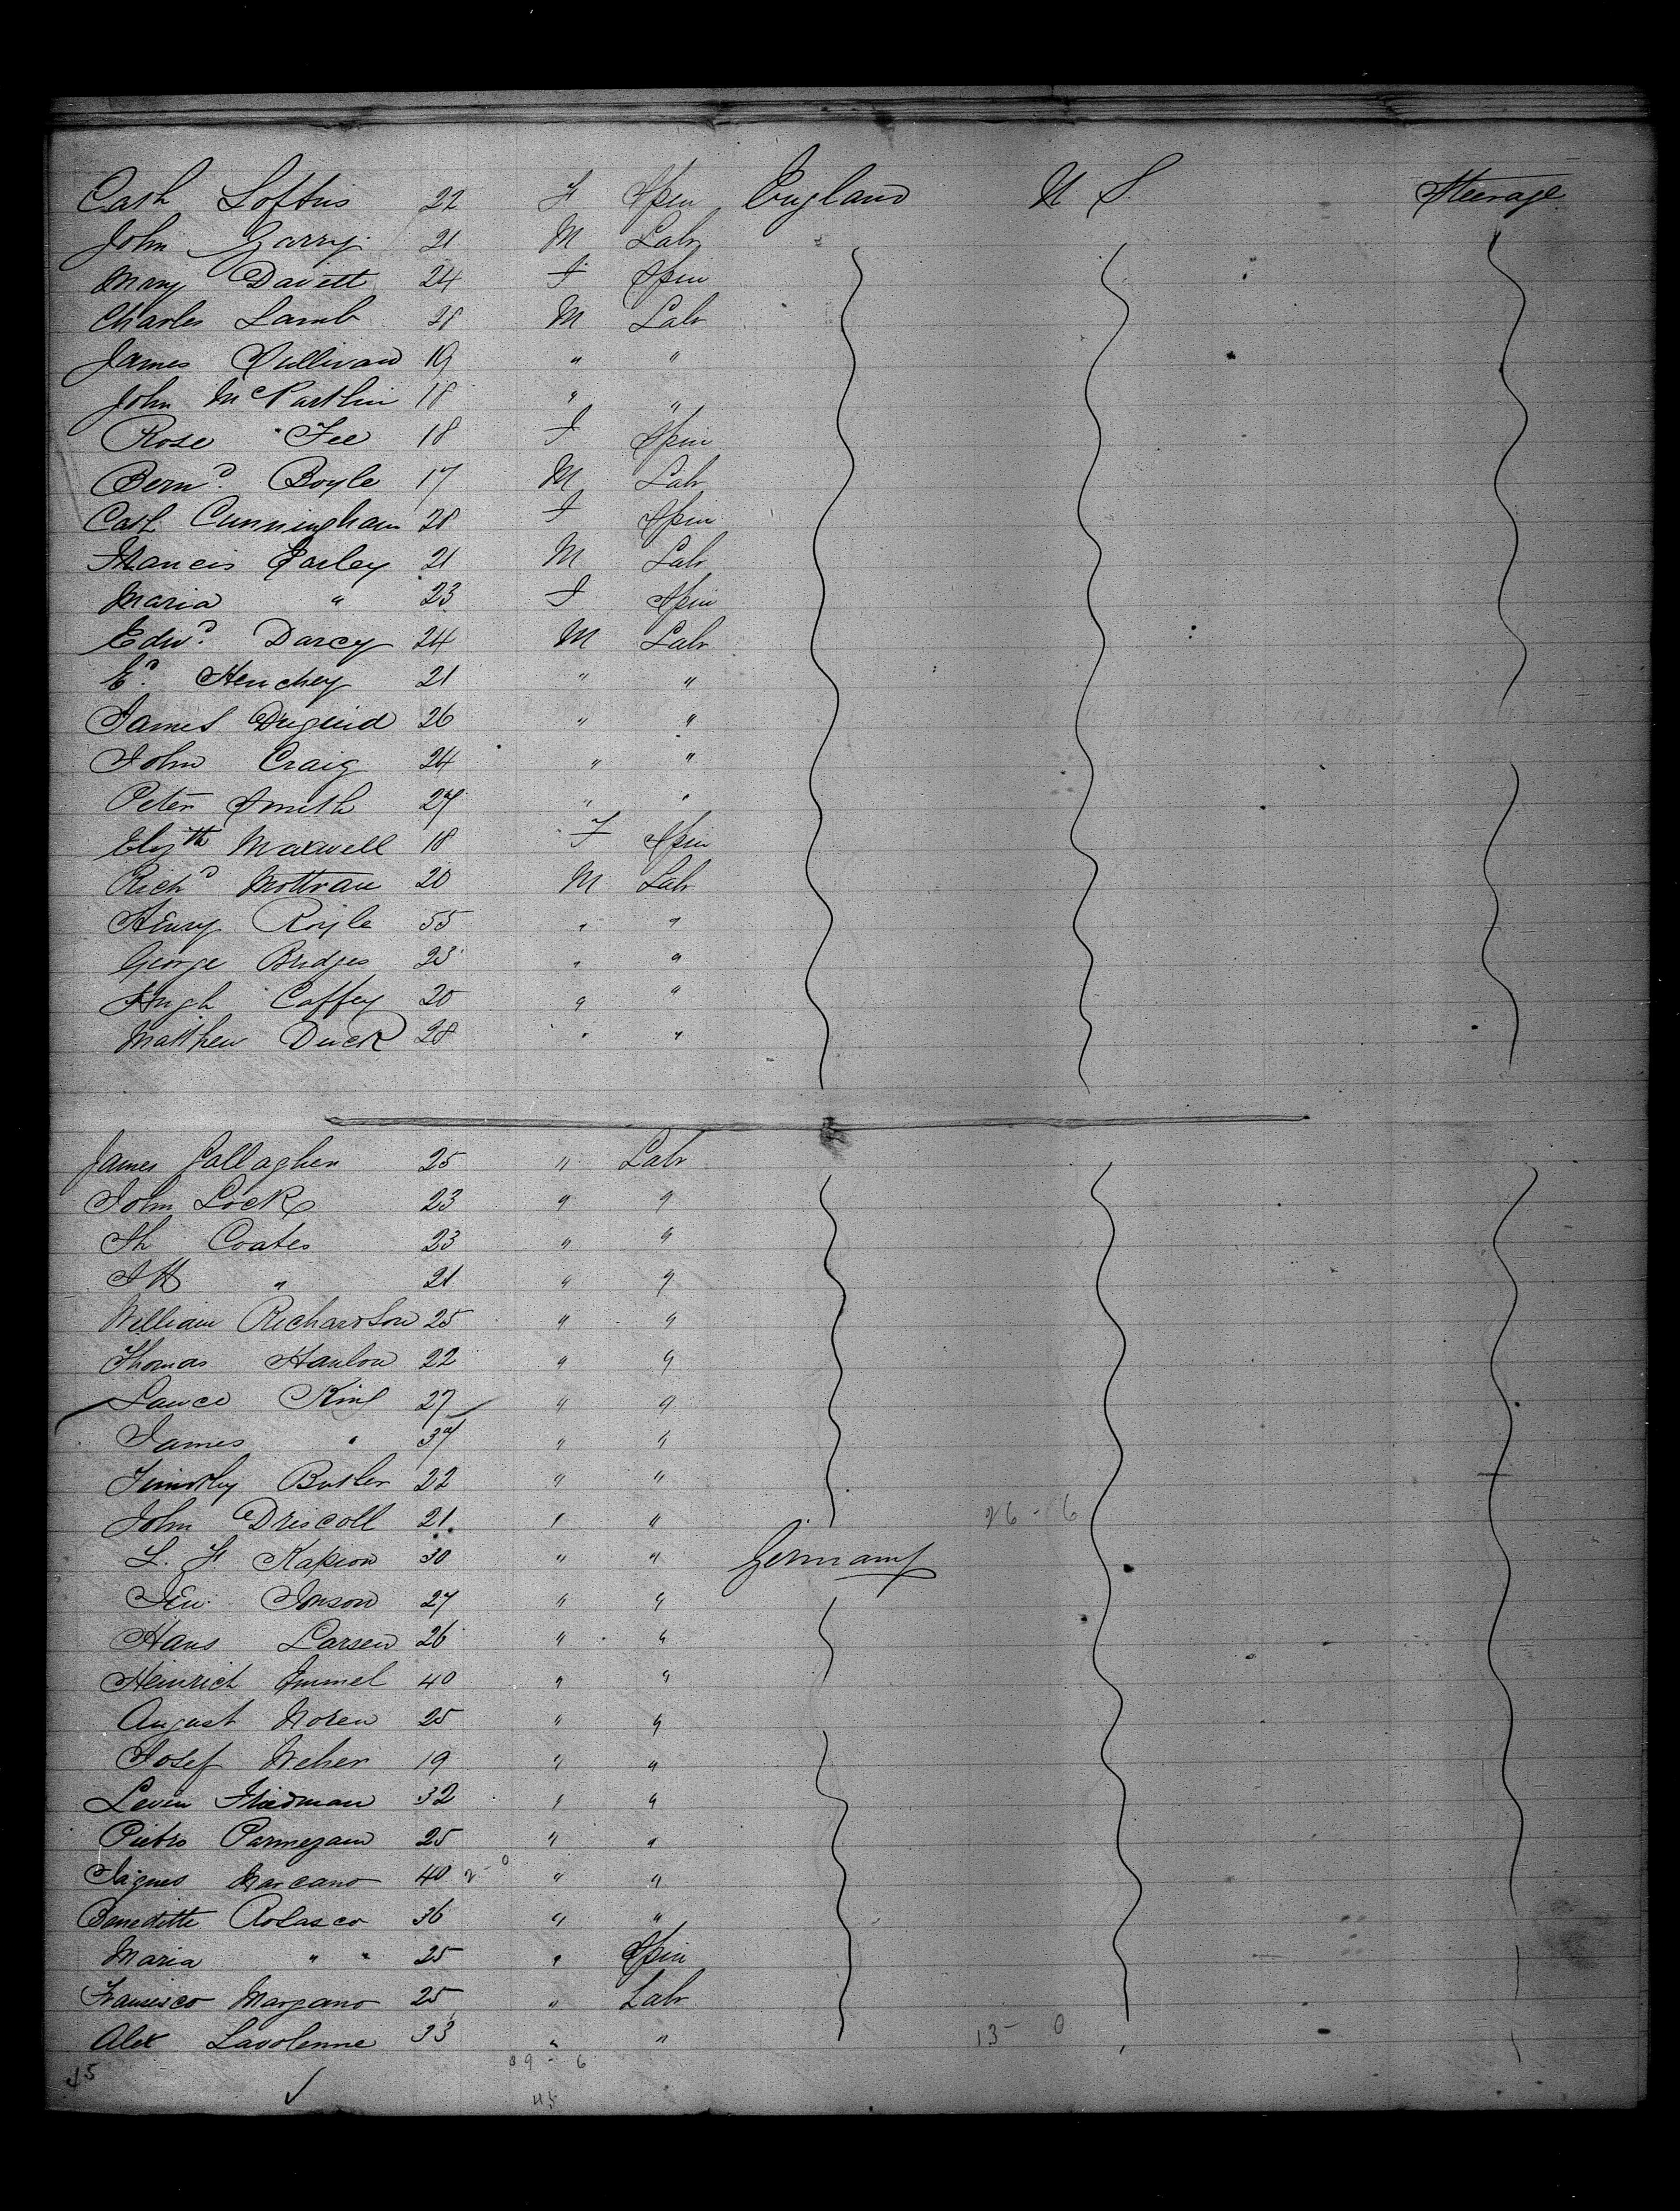 Cath Loftus 22 F Spin England U S. Steerage
John Garry 21 M Labr
Mary Davett 24 F Spin
Charles Lamb 28 M Labr
James Sullivan 19 " "
John McPartlin 18 " "
Rose Fee 18 F Spin
Bernd. Boyle 17 M Labr
Cath Cunningham 28 F Spin
Francis Farley 21 M Labr
Maria " 23 F Spin
Edwd. Darcy 24 M Labr
Ed. Henchey 21 " "
James Duguid 26 " "
John Craig 24 " "
Peter Smith 27 " "
Elizth Maxwell 18 F Spin
Richd Mottrau 20 M Labr
Henry Royle 55 " "
George Bridges 23 " "
Hugh Caffey 20 " "
Matthew Duck 28 " "
James Gallagher 25 " Labr
John Lock 23 " "
Th Coates 23 " "
" 21 " "
William Richardson 25 " "
Thomas Hanlon 22 " "
Lawce King 27 " "
James " 37 " "
Timothy Butler 22 " "
John Driscoll 21 " " 26 - 6
L. F. Kapion 30 " " Germany
Jonson 27 " "
Hans Larsen 26 " "
Heinrich Emmel 40 " "
August Noren 25 " "
Josef Weber 19 " "
Levin Friedman 32 " "
Pietro Parmezan 25 " "
Marcano 40 2-0 " "
Beneditte Rolasco 36 " "
Maria " " 25 " Spin
Francisco Margano 25 " Labr
Alex Lavolenne 33 " " 13 - 0
39 - 6
45
45